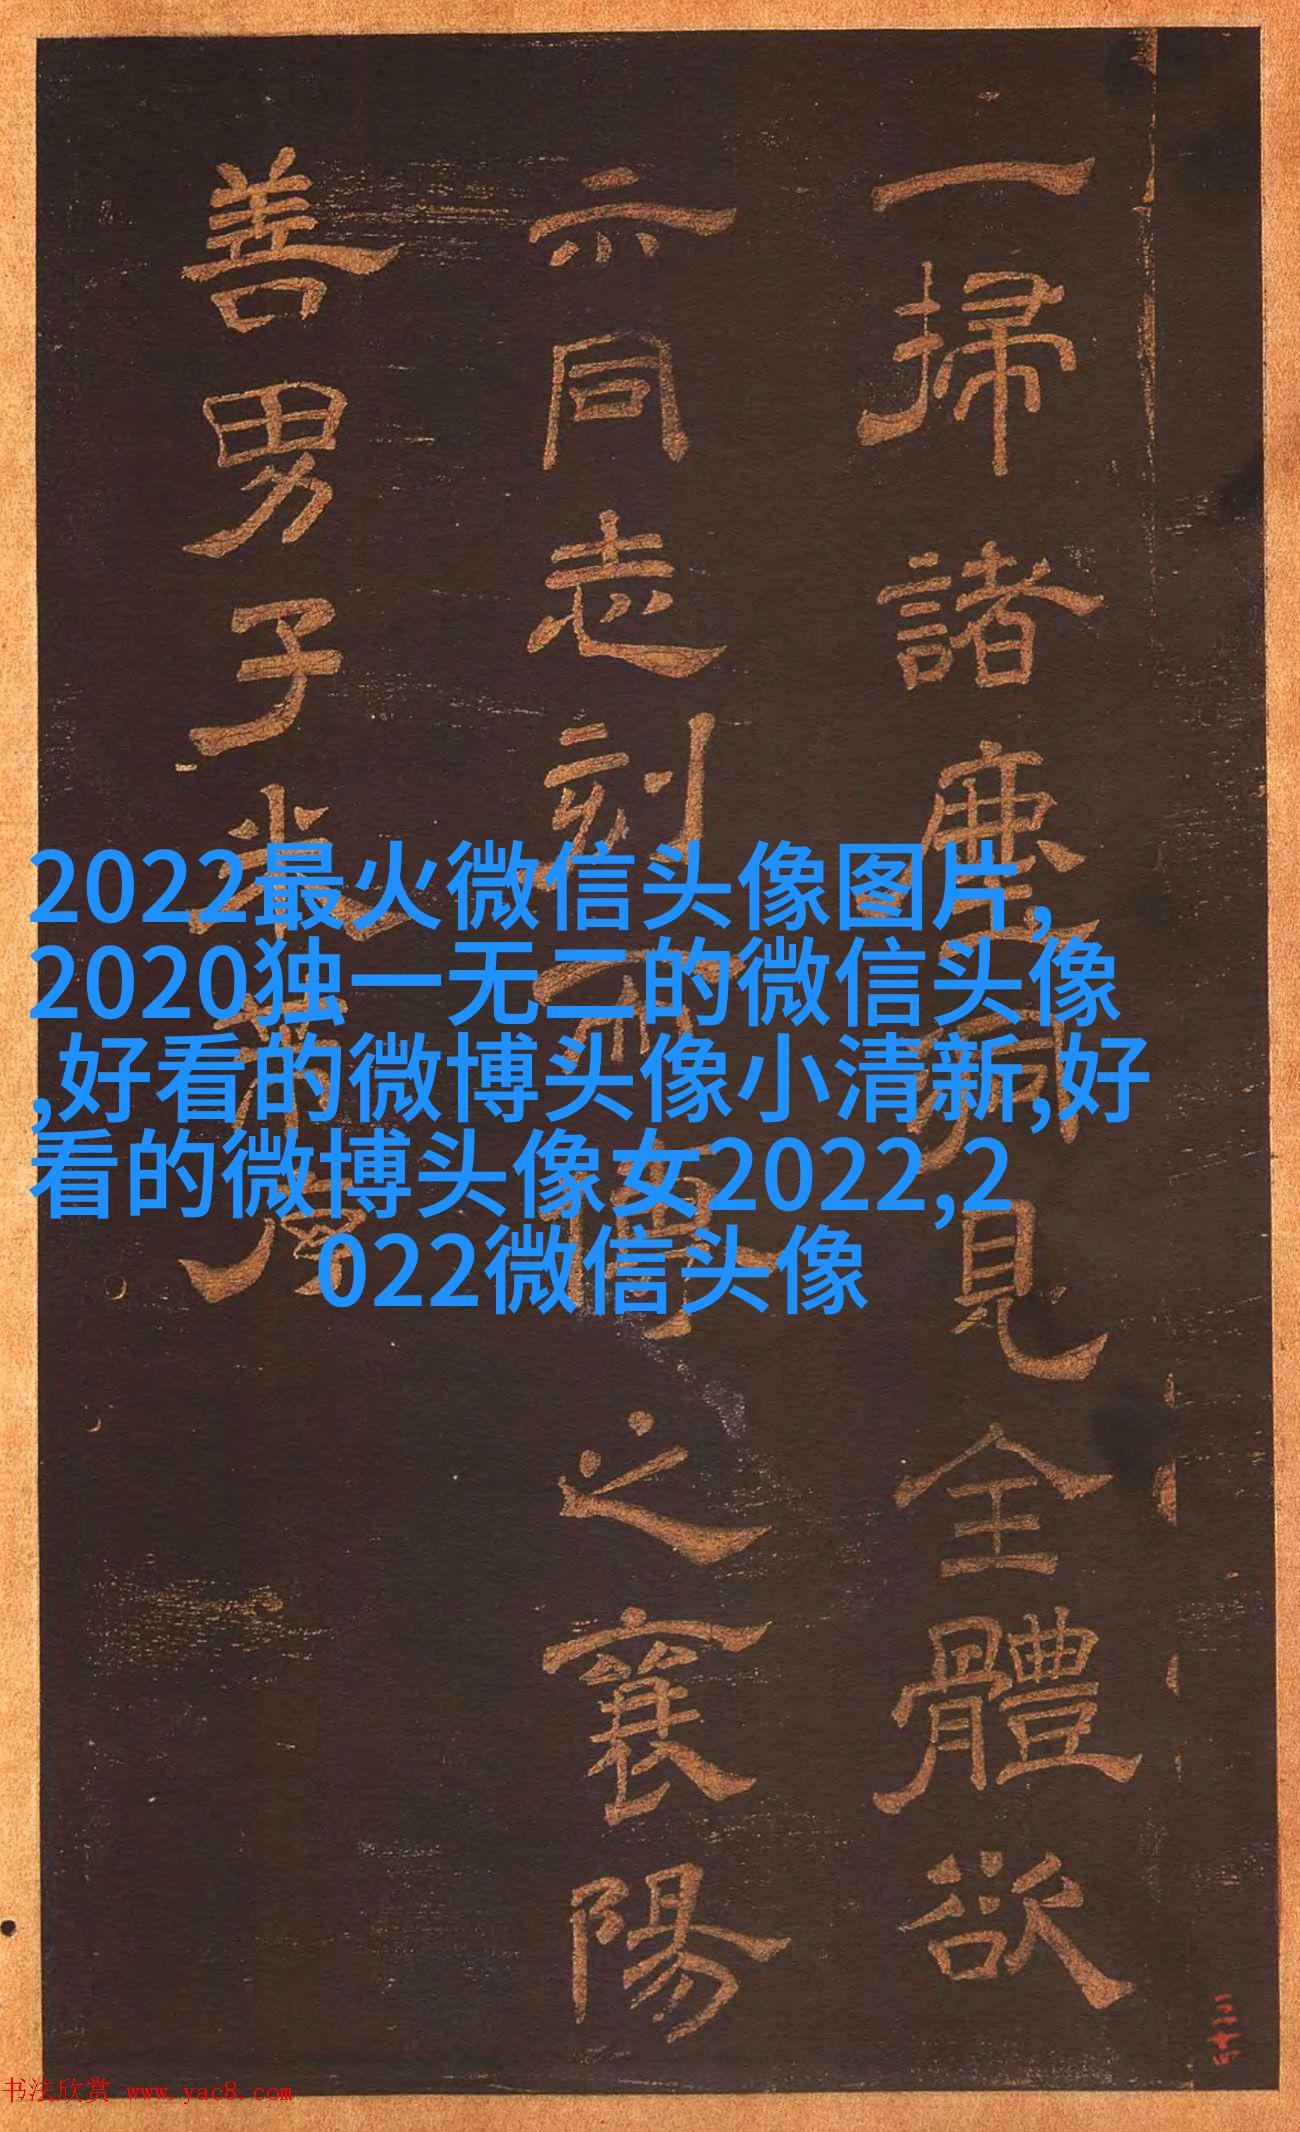 一掃諸塵見全體欲
示同志刻而之襄陽
善男子米
2022最火微信头像图片,
2020独一无二的微信头像
,好看的微博头像小清新,好
看的微博头像女2022,2
022微信头像
书法欣赏 www.yac8.com